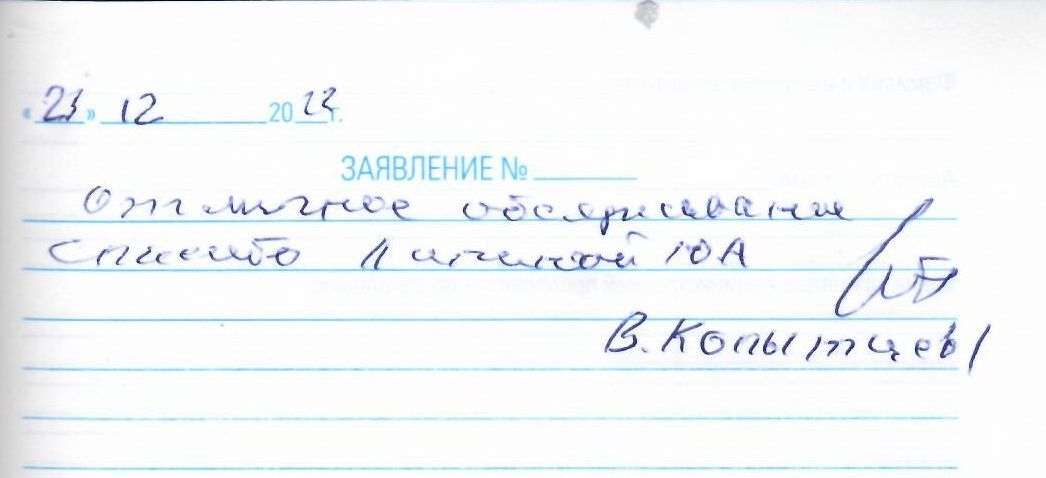 «23» 12 2022 г.
ЗАЯВЛЕНИЕ №
Отличное обслуживание
Спасибо Ю А
В. Копытцев